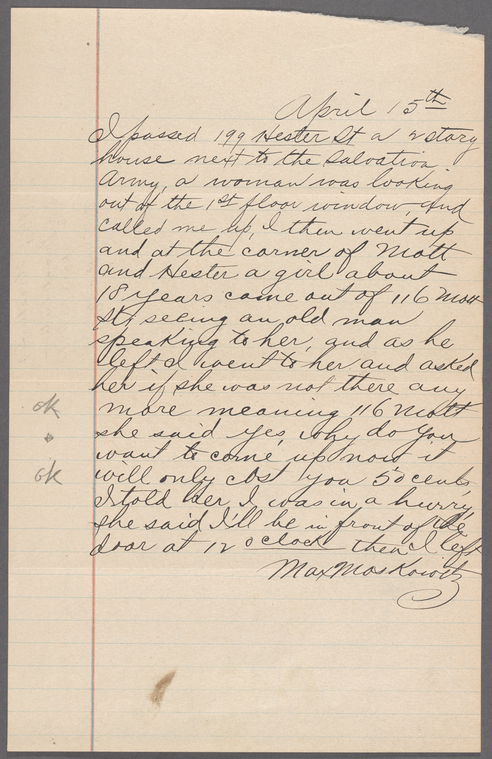 April 15th
I passed 199 Hester St a 2 story
house next to the Salvation
Army, a woman was looking
out of the 1st floor window, and
called me up, I then went up
and at the corner of Mott
and Hester a girl about
18 years came out of 116 Mott
St, seeing an old man
speaking to her, and as he
left I went to her and asked
her if she was not there any
more meaning 116 Mott
she said yes, why do you
want to come up now it
will only cost you 50 cents,
I told her I was in a hurry
she said I'll be in front of the
door at 12 oclock then I left
Max Moskowitz
ok
ok